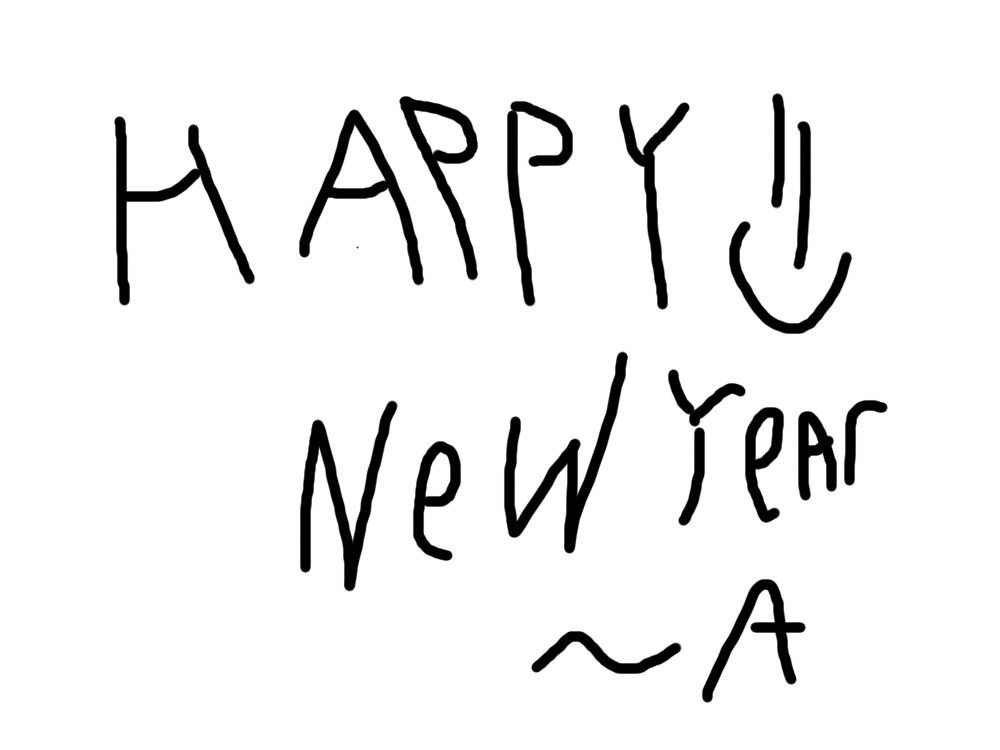 HAPPY
New Year
~A